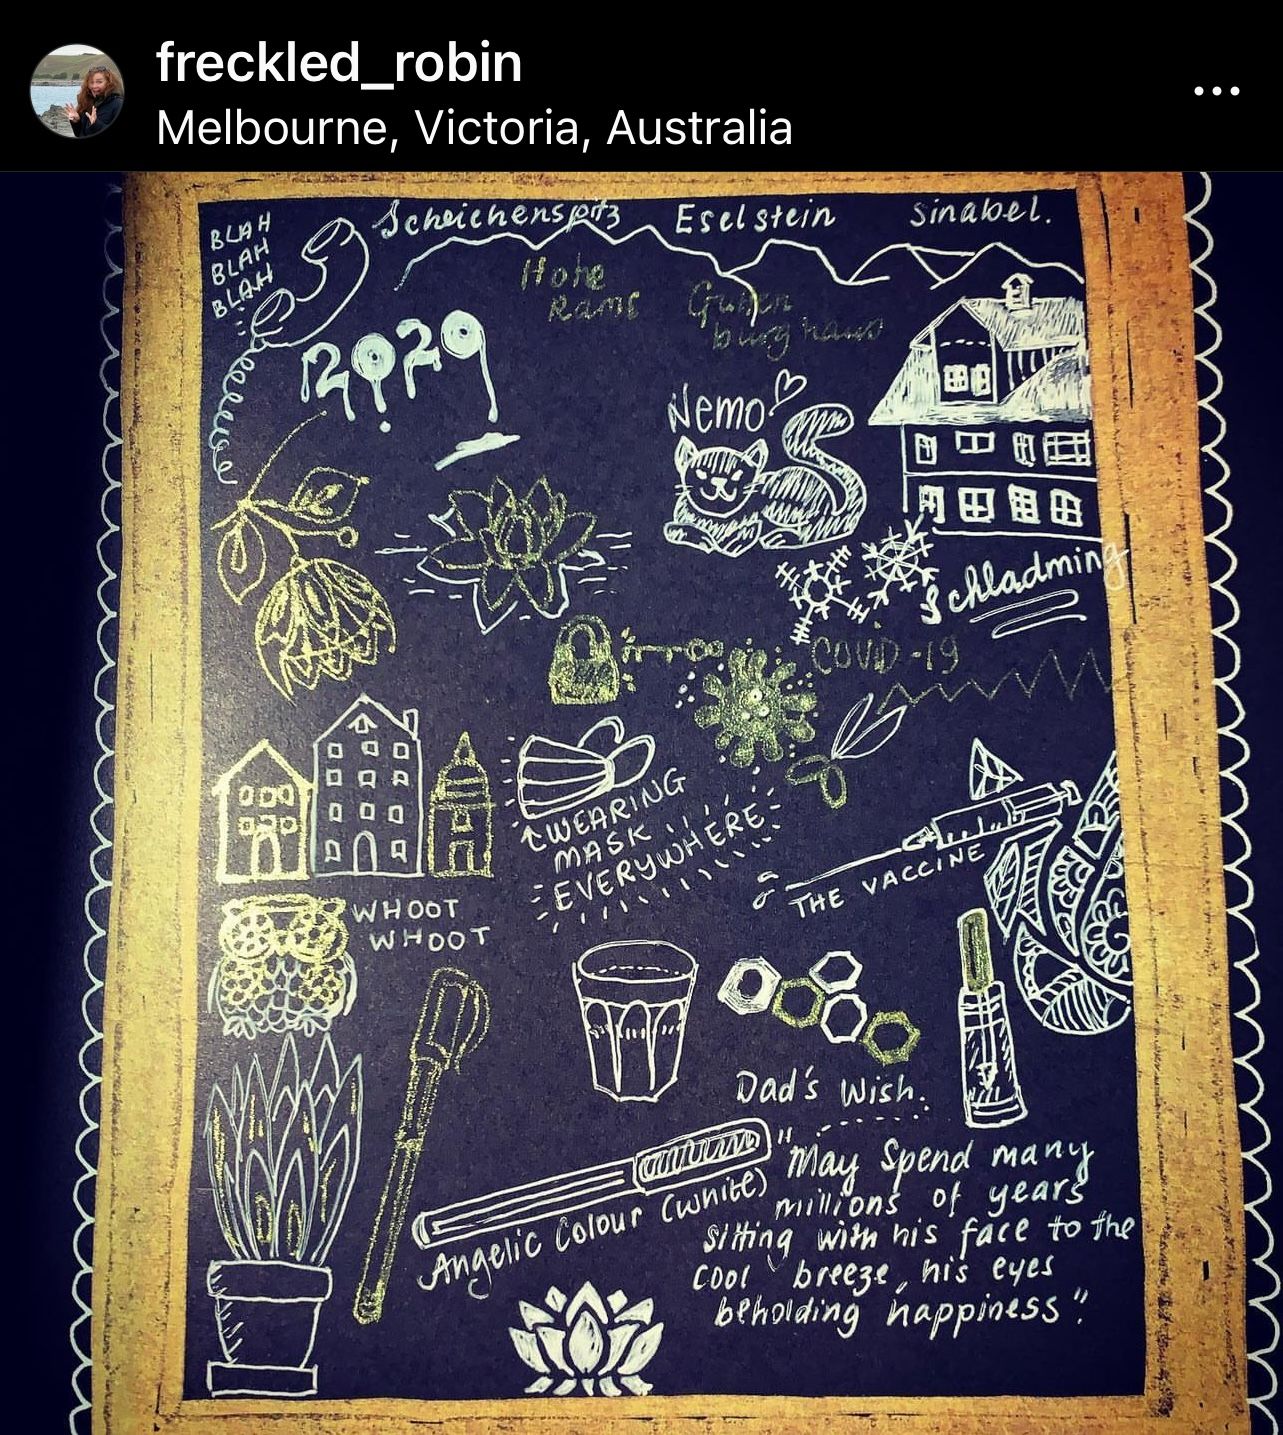 freckled_robin
Melbourne, Victoria, Australia
BLAH
BLAH
BLAH
Scheichenspitz Eselstein Sinabel.
Hohe
Rams
Guttenburghaus
2020
Nemo
Schladming
COVID-19
WEARING
MASK
EVERYWHERE
THE VACCINE
WHOOT
WHOOT
Dad's Wish.
"May Spend many
millions of years
sitting with his face to the
cool breeze, his eyes
beholding happiness".
Angelic Colour (white)